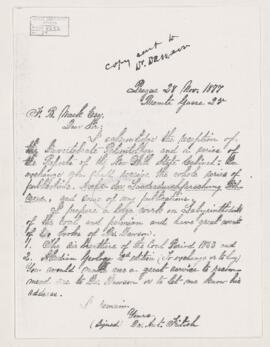 copy sent to
Dr. Dawson
Prague 28 Nov. 1877
Brenti Gasse 25
Esq.
Dear Sir,
I acknowledge the reception of
the Invertebrate Paleontology and a series of
the Reports of the State Cabinet. In
exchange you shall receive the whole series of
publications,
and some of my publications.
I prepare a large work on Labyrinthodonts
of the Coal and Permian and have great want
of two books of Dr. Dawson.
1. The air breathers of the Coal Period 1863 and
2. Acadian Geology 2d edition (In exchange or to buy)
You would make me a great service to
me to Dr. Dawson or to let me know his
address.
I remain
Yours
(signed) Dr. Ant. Fritsch